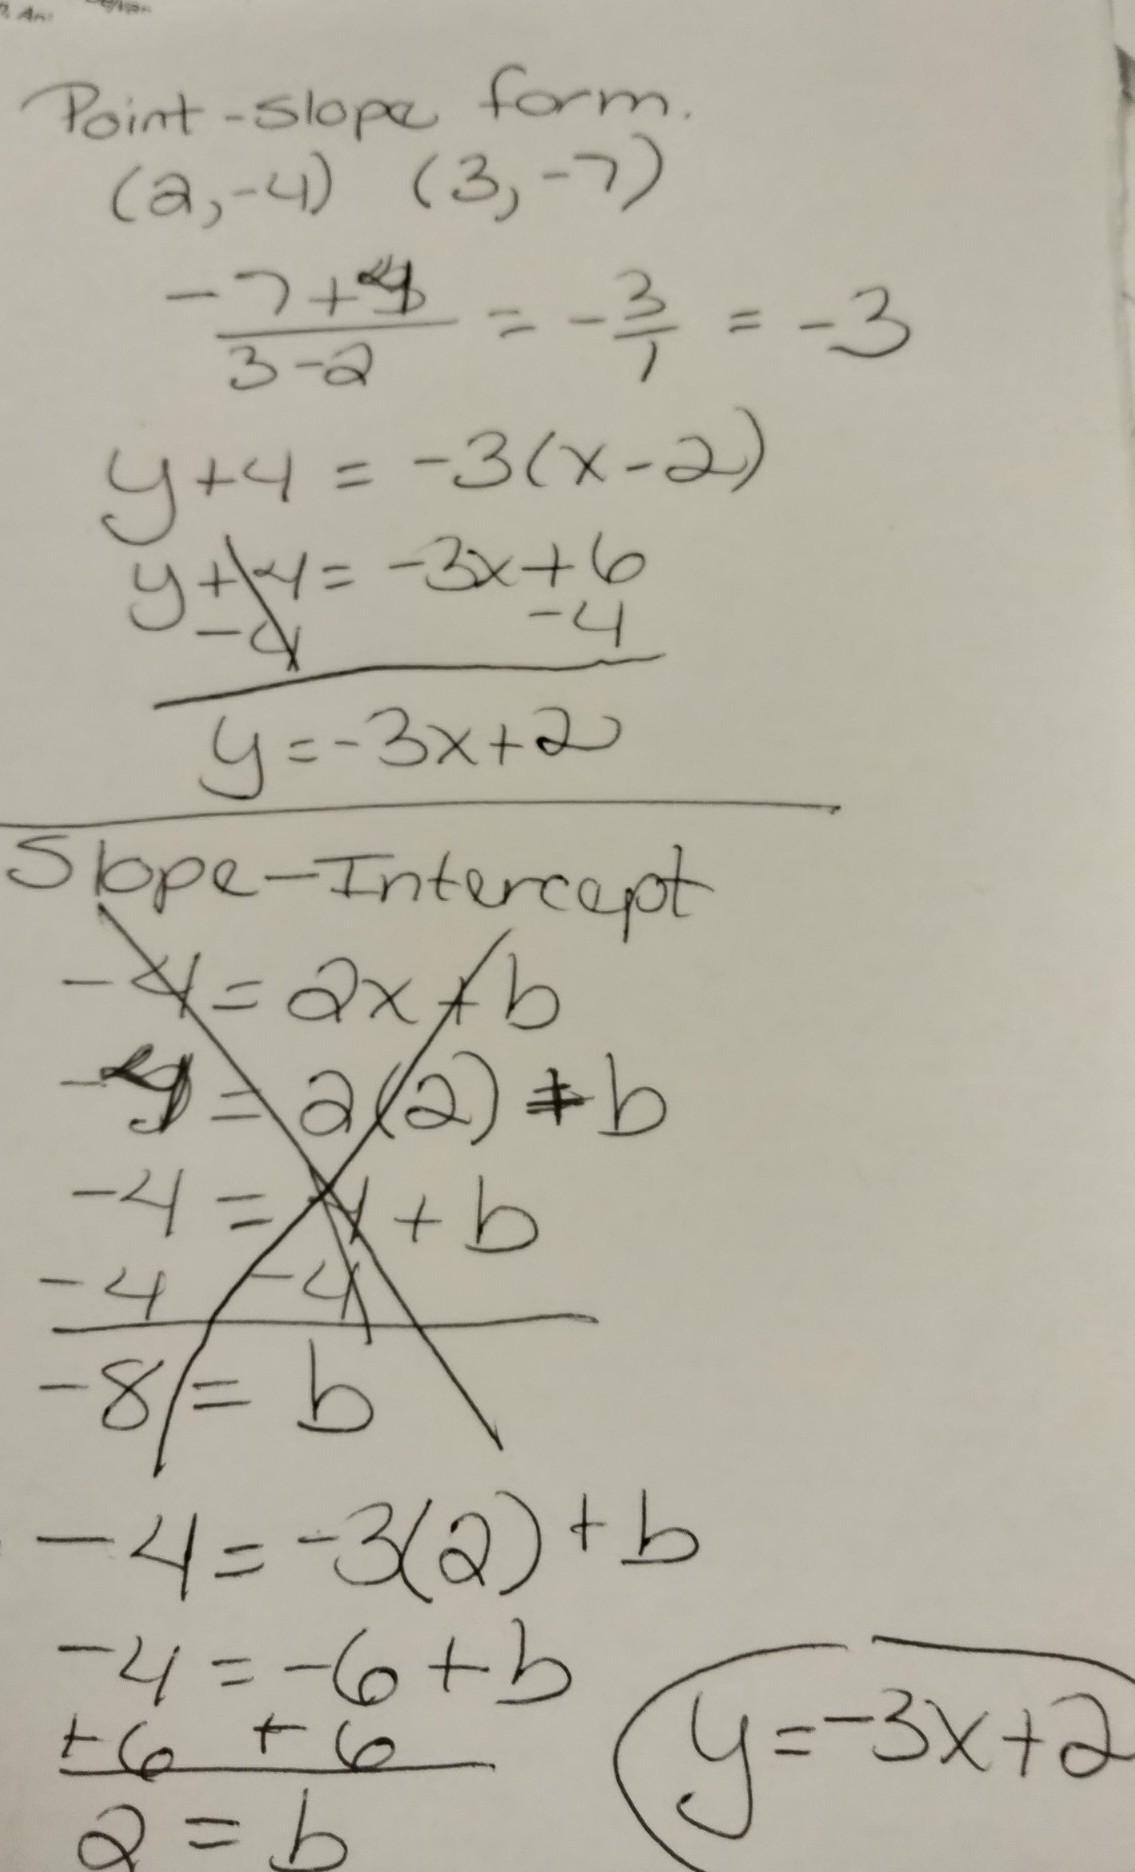 Point-slope form.
(2,-4) (3,-7)
-7+4
3-2
= -3/1 = -3
y+4 = -3(x-2)
y+4 = -3x+6
-4 -4
y=-3x+2
Slope-Intercept
-4 = 2x+b
-4 = 2(2)+b
-4 = 4+b
-4 -4
-8 = b
-4 = -3(2)+b
-4 = -6+b
+6 +6
2 = b
y=-3x+2